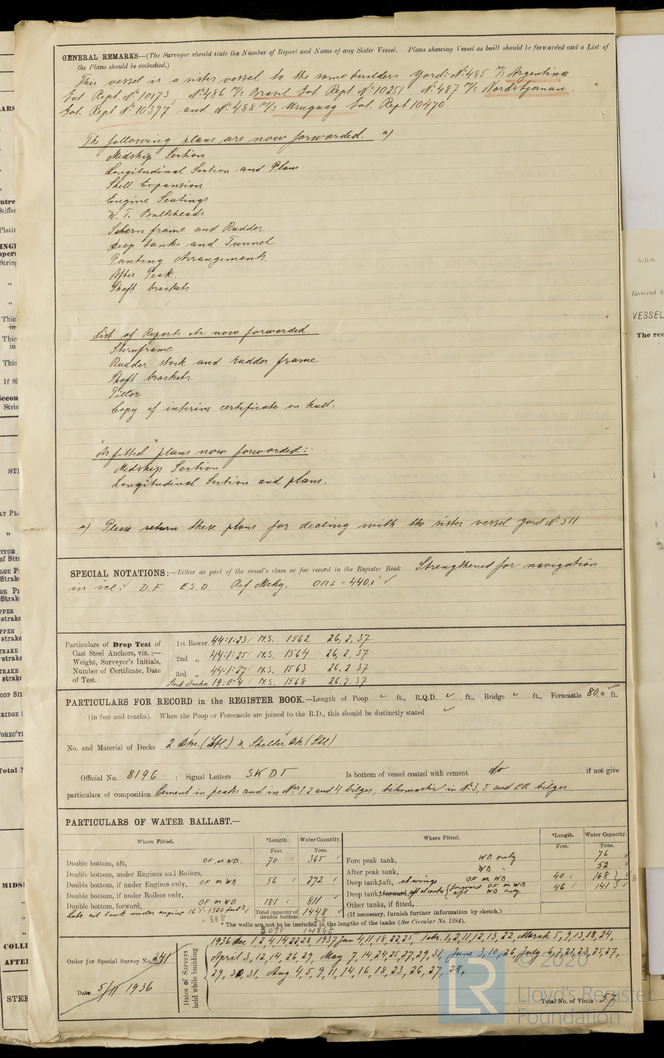 GENERAL REMARKS—(The Surveyor should state the Number of Report and Name of any Sister Vessel. Plans showing Vessel as built should be forwarded and a List of
the Plans should be embodied.)
This vessel is a sister vessel to the same builders Yard: No 485 m/s Argentina
Got. Rept. No 10173, No 486 m/s Brasil Got. Rept No 10251 No 487 m/s Nordstjernan
Got. Rept No 10397 and No 488 m/s Uruguay Got. Rept 10470
The following plans are now forwarded. a)
Midship Section
Longitudinal Section and Plans
Shell Expansion
Engine Seatings
W. T. Bulkheads
Stern frame and Rudder
Deep tanks and Tunnel
Panting Arrangements
After Peak
Shaft brackets
List of Reports &c now forwarded
Sternframe
Rudder stock and rudder frame
Shaft brackets
Tiller
Copy of interim certificate on hull.
"As fitted" plans now forwarded:
Midship Section
Longitudinal Section and plans.
a) Please return these plans for dealing with the sister vessel Yard No 511
SPECIAL NOTATIONS:—Either as part of the vessel's class or for record in the Register Book Strengthened for navigation
in ice. D.F. E.S.D. Ref. Mchy. OAL = 440,1
Particulars of Drop Test of
Cast Steel Anchors, viz.:—
Weight, Surveyor's Initials,
Number of Certificate, Date
of Test.
1st Bower 44:1:23: M.S. 1562 26.2.37
2nd „ 44:1:25 M.S. 1564 26.2.37
3rd „ 44:1:27 M.S. 1563 26.2.37
19:0:4 M.S. 1568 26.2.37
PARTICULARS FOR RECORD in the REGISTER BOOK.—Length of Poop ft., R.Q.D. ft., Bridge ft., Forecastle 80,0 ft.
(in feet and tenths). When the Poop or Forecastle are joined to the B.D., this should be distinctly stated
No. and Material of Decks 2 Dks. (Stl) & Shelter Dk (Stl)
Official No. 8196 ; Signal Letters SKDT Is bottom of vessel coated with cement No if not give
particulars of composition. Cement in peaks and in Nos 1 2 and 4 bilges, bitumastic in No 3, 5 and ER bilges.
PARTICULARS OF WATER BALLAST.—
Where Fitted. *Length. Water Capacity.
Feet. Tons.
Double bottom, aft, OF or WB. 70 365
Double bottom, under Engines and Boilers,
Double bottom, if under Engines only, OF or WB 56 272
Double bottom, if under Boilers only,
Double bottom, forward, OF or WB 181 811
Total capacity of double bottoms 1448
Where Fitted. *Length. Water Capacity.
Feet. Tons.
Fore peak tank, WB only 76
After peak tank, WB 52
Deep tank, aft, at wings OF or WB 40 168
Deep tank, forward, 46 141
Other tanks, if fitted,
(If necessary, furnish further information by sketch.)
* The wells are not to be included in the lengths of the tanks (See Circular No. 1284).
Order for Special Survey No. 241
Date 5/11 1936
Dates of Surveys
held while building
1936 Dec 1,2,4,14,22,28 1937 Jan 4,11,18,22,25, Feb. 1,2,11,12,13,22, March 5,9,13,18,24,
April 3,12,14,26,29, May 7,14,24,25,27,29,31, June 3,10,26, July 4,7,21,23,25,27,
29,30,31, Aug 4,5,9,11,14,16,18,23,26,27,28,
Total No. of Visits 57
© 2020
LR
Lloyd's Register
Foundation
Received
VESSEL
The re